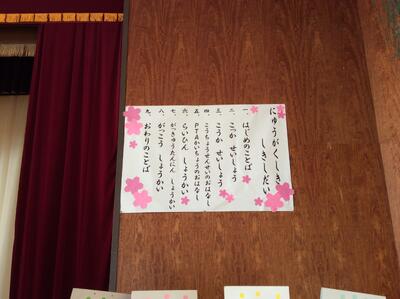 にゅうがくしき
しきしだい
一、はじめのことば
二、こっか せいしょう
三、こうか せいしょう
四、こうちょうせんせいのおはなし
五、PTAかいちょうのおはなし
六、らいひん しょうかい
七、がっきゅうたんにん しょうかい
八、がっこう しょうかい
九、おわりのことば